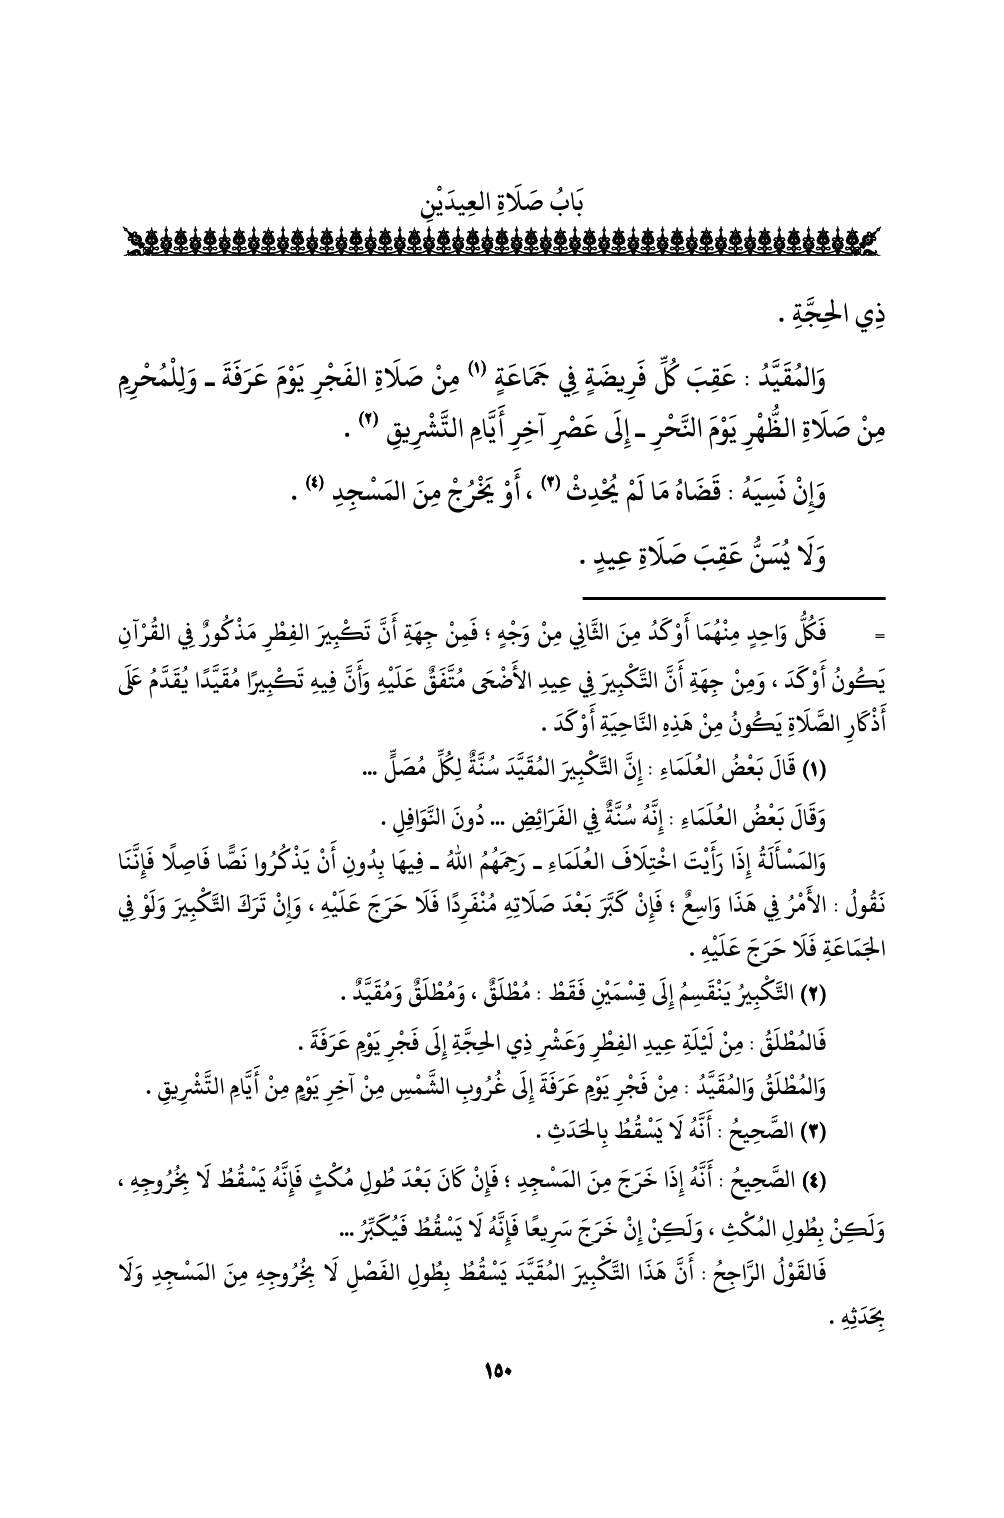 بَابُ صَلَاةِ العِيدَيْنِ
ذِي الحِجَّةِ .
وَالمُقَيَّدُ : عَقِبَ كُلِّ فَرِيضَةٍ فِي جَمَاعَةٍ (١) مِنْ صَلَاةِ الفَجْرِ يَوْمَ عَرَفَةَ ـ وَلِلْمُحْرِمِ
مِنْ صَلَاةِ الظُّهْرِ يَوْمَ النَّحْرِ ـ إِلَى عَصْرِ آخِرِ أَيَّامِ التَّشْرِيقِ (٢) .
وَإِنْ نَسِيَهُ : قَضَاهُ مَا لَمْ يُحْدِثْ (٣) ، أَوْ يَخْرُجْ مِنَ المَسْجِدِ (٤) .
وَلَا يُسَنُّ عَقِبَ صَلَاةِ عِيدٍ .
= فَكُلُّ وَاحِدٍ مِنْهُمَا أَوْكَدُ مِنَ الثَّانِي مِنْ وَجْهٍ ؛ فَمِنْ جِهَةِ أَنَّ تَكْبِيرَ الفِطْرِ مَذْكُورٌ فِي القُرْآنِ
يَكُونُ أَوْكَدَ ، وَمِنْ جِهَةِ أَنَّ التَّكْبِيرَ فِي عِيدِ الأَضْحَى مُتَّفَقٌ عَلَيْهِ وَأَنَّ فِيهِ تَكْبِيرًا مُقَيَّدًا يُقَدَّمُ عَلَى
أَذْكَارِ الصَّلَاةِ يَكُونُ مِنْ هَذِهِ النَّاحِيَةِ أَوْكَدَ .
(١) قَالَ بَعْضُ العُلَمَاءِ : إِنَّ التَّكْبِيرَ المُقَيَّدَ سُنَّةٌ لِكُلِّ مُصَلٍّ ...
وَقَالَ بَعْضُ العُلَمَاءِ : إِنَّهُ سُنَّةٌ فِي الفَرَائِضِ ... دُونَ النَّوَافِلِ .
وَالمَسْأَلَةُ إِذَا رَأَيْتَ اخْتِلَافَ العُلَمَاءِ ـ رَحِمَهُمُ اللهُ ـ فِيهَا بِدُونِ أَنْ يَذْكُرُوا نَصًّا فَاصِلًا فَإِنَّنَا
نَقُولُ : الأَمْرُ فِي هَذَا وَاسِعٌ ؛ فَإِنْ كَبَّرَ بَعْدَ صَلَاتِهِ مُنْفَرِدًا فَلَا حَرَجَ عَلَيْهِ ، وَإِنْ تَرَكَ التَّكْبِيرَ وَلَوْ فِي
الجَمَاعَةِ فَلَا حَرَجَ عَلَيْهِ .
(٢) التَّكْبِيرُ يَنْقَسِمُ إِلَى قِسْمَيْنِ فَقَطْ : مُطْلَقٌ ، وَمُطْلَقٌ وَمُقَيَّدٌ .
فَالمُطْلَقُ : مِنْ لَيْلَةِ عِيدِ الفِطْرِ وَعَشْرِ ذِي الحِجَّةِ إِلَى فَجْرِ يَوْمِ عَرَفَةَ .
وَالمُطْلَقُ وَالمُقَيَّدُ : مِنْ فَجْرِ يَوْمِ عَرَفَةَ إِلَى غُرُوبِ الشَّمْسِ مِنْ آخِرِ يَوْمٍ مِنْ أَيَّامِ التَّشْرِيقِ .
(٣) الصَّحِيحُ : أَنَّهُ لَا يَسْقُطُ بِالحَدَثِ .
(٤) الصَّحِيحُ : أَنَّهُ إِذَا خَرَجَ مِنَ المَسْجِدِ ؛ فَإِنْ كَانَ بَعْدَ طُولِ مُكْثٍ فَإِنَّهُ يَسْقُطُ لَا بِخُرُوجِهِ ،
وَلَكِنْ بِطُولِ المُكْثِ ، وَلَكِنْ إِنْ خَرَجَ سَرِيعًا فَإِنَّهُ لَا يَسْقُطُ فَيُكَبِّرُ ...
فَالقَوْلُ الرَّاجِحُ : أَنَّ هَذَا التَّكْبِيرَ المُقَيَّدَ يَسْقُطُ بِطُولِ الفَصْلِ لَا بِخُرُوجِهِ مِنَ المَسْجِدِ وَلَا
بِحَدَثِهِ .
١٥٠